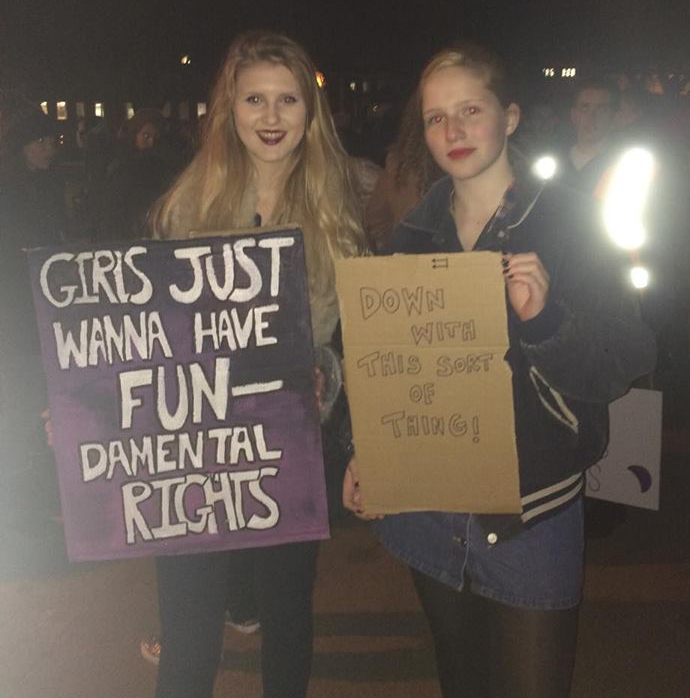 GIRLS JUST
WANNA HAVE
FUN—
DAMENTAL
RIGHTS
DOWN
WITH
THIS SORT
OF
THING!